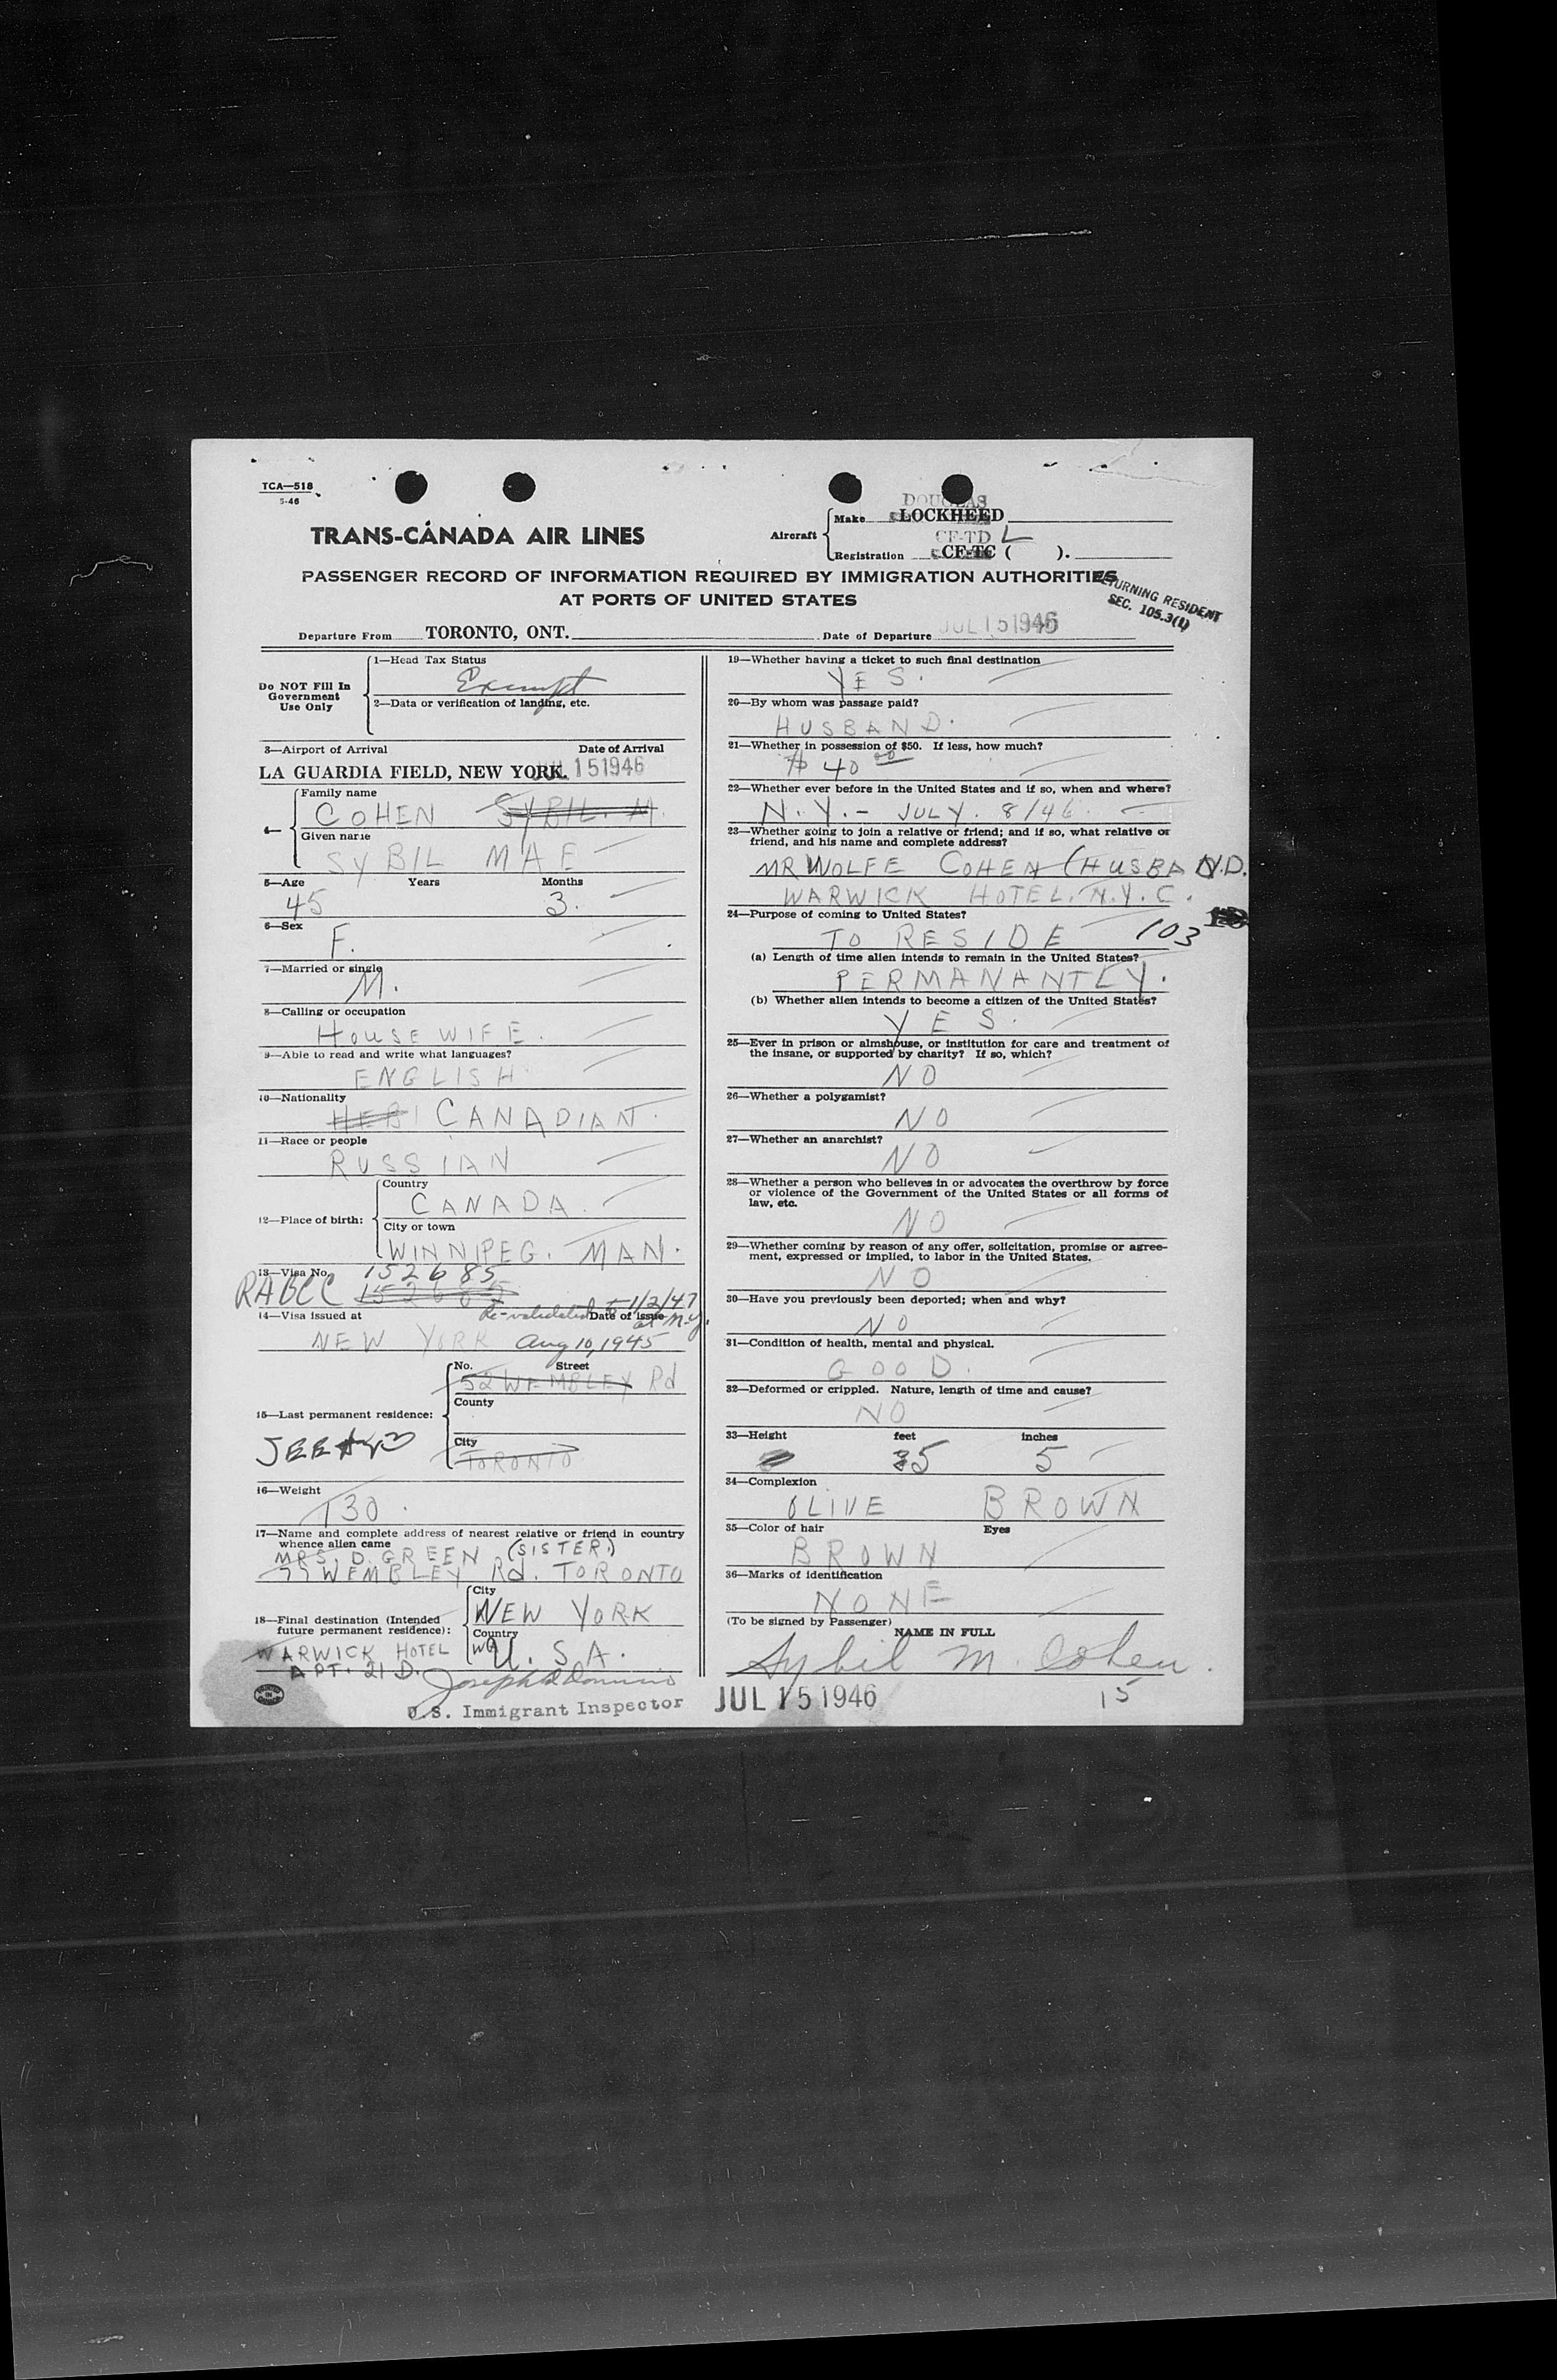 TCA—518
5-46
TRANS-CANADA AIR LINES
Aircraft
Make DOUGLAS LOCKHEED
Registration CF-TD L CF-TC ( ).
PASSENGER RECORD OF INFORMATION REQUIRED BY IMMIGRATION AUTHORITIES
AT PORTS OF UNITED STATES
RETURNING RESIDENT
SEC. 105.3(1)
Departure From TORONTO, ONT. Date of Departure JUL 15 1946
Do NOT Fill In
Government
Use Only
1—Head Tax Status
Exempt
2—Data or verification of landing, etc.
3—Airport of Arrival Date of Arrival
LA GUARDIA FIELD, NEW YORK. JUL 15 1946
4—
Family name
COHEN SYBIL. M.
Given name
SYBIL MAE
5—Age Years Months
45 3.
6—Sex
F.
7—Married or single
M.
8—Calling or occupation
HOUSEWIFE.
9—Able to read and write what languages?
ENGLISH
10—Nationality
HEB CANADIAN.
11—Race or people
RUSSIAN
12—Place of birth:
Country
CANADA.
City or town
WINNIPEG. MAN.
13—Visa No. 152685
152685
14—Visa issued at Re-validated to 1/2/47 Date of issue at N.Y.
NEW YORK Aug 10, 1945
15—Last permanent residence:
No. Street
52 WEMBLEY Rd
County
City
TORONTO
16—Weight
130.
17—Name and complete address of nearest relative or friend in country
whence alien came
MRS. D. GREEN (SISTER.)
77 WEMBLEY Rd. TORONTO
18—Final destination (Intended
future permanent residence):
City
NEW YORK
Country
U.S.A.
WARWICK HOTEL
APT. 21 D.
U.S. Immigrant Inspector
19—Whether having a ticket to such final destination
YES.
20—By whom was passage paid?
HUSBAND.
21—Whether in possession of $50. If less, how much?
$ 40 00
22—Whether ever before in the United States and if so, when and where?
N.Y. - JULY. 8/46.
23—Whether going to join a relative or friend; and if so, what relative or
friend, and his name and complete address?
MR WOLFE COHEN (HUSBAND.
WARWICK HOTEL. N.Y.C.
24—Purpose of coming to United States?
TO RESIDE 103
(a) Length of time alien intends to remain in the United States?
PERMANANTLY.
(b) Whether alien intends to become a citizen of the United States?
YES.
25—Ever in prison or almshouse, or institution for care and treatment of
the insane, or supported by charity? If so, which?
NO
26—Whether a polygamist?
NO
27—Whether an anarchist?
NO
28—Whether a person who believes in or advocates the overthrow by force
or violence of the Government of the United States or all forms of
law, etc.
NO
29—Whether coming by reason of any offer, solicitation, promise or agree-
ment, expressed or implied, to labor in the United States.
NO
30—Have you previously been deported; when and why?
NO
31—Condition of health, mental and physical.
GOOD.
32—Deformed or crippled. Nature, length of time and cause?
NO
33—Height feet inches
5 5
34—Complexion
OLIVE BROWN
35—Color of hair Eyes
BROWN
36—Marks of identification
NONE
(To be signed by Passenger)
NAME IN FULL
Sybil M. Cohen.
JUL 15 1946
15